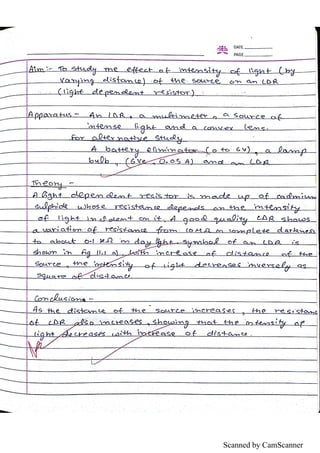 DATE
PAGE
Aim:- To study the effect of intensity of light (by
varying distance) of the source on an LDR
(light dependent resistor).
Apparatus - An LDR, a multimeter, a source of
intense light and a convex lens.
For alternative study
A battery eliminator (0 to 6V), a lamp
bulb, (6V, 0.05 A) and an LDR
Theory -
A light dependent resistor is made up of cadmium
sulphide whose resistance depends on the intensity
of light incident on it. A good quality LDR shows
a variation of resistance from 10 MΩ in complete darkness
to about 0.1 KΩ in day light. symbol of an LDR is
shown in fig 11.1 a). With increase of distance of the
source, the intensity of light decreases inversely as
square of distance.
Conclusions -
As the distance of the source increases, the resistance
of LDR also increases, showing that the intensity of
light decreases with increase of distance.
Scanned by CamScanner